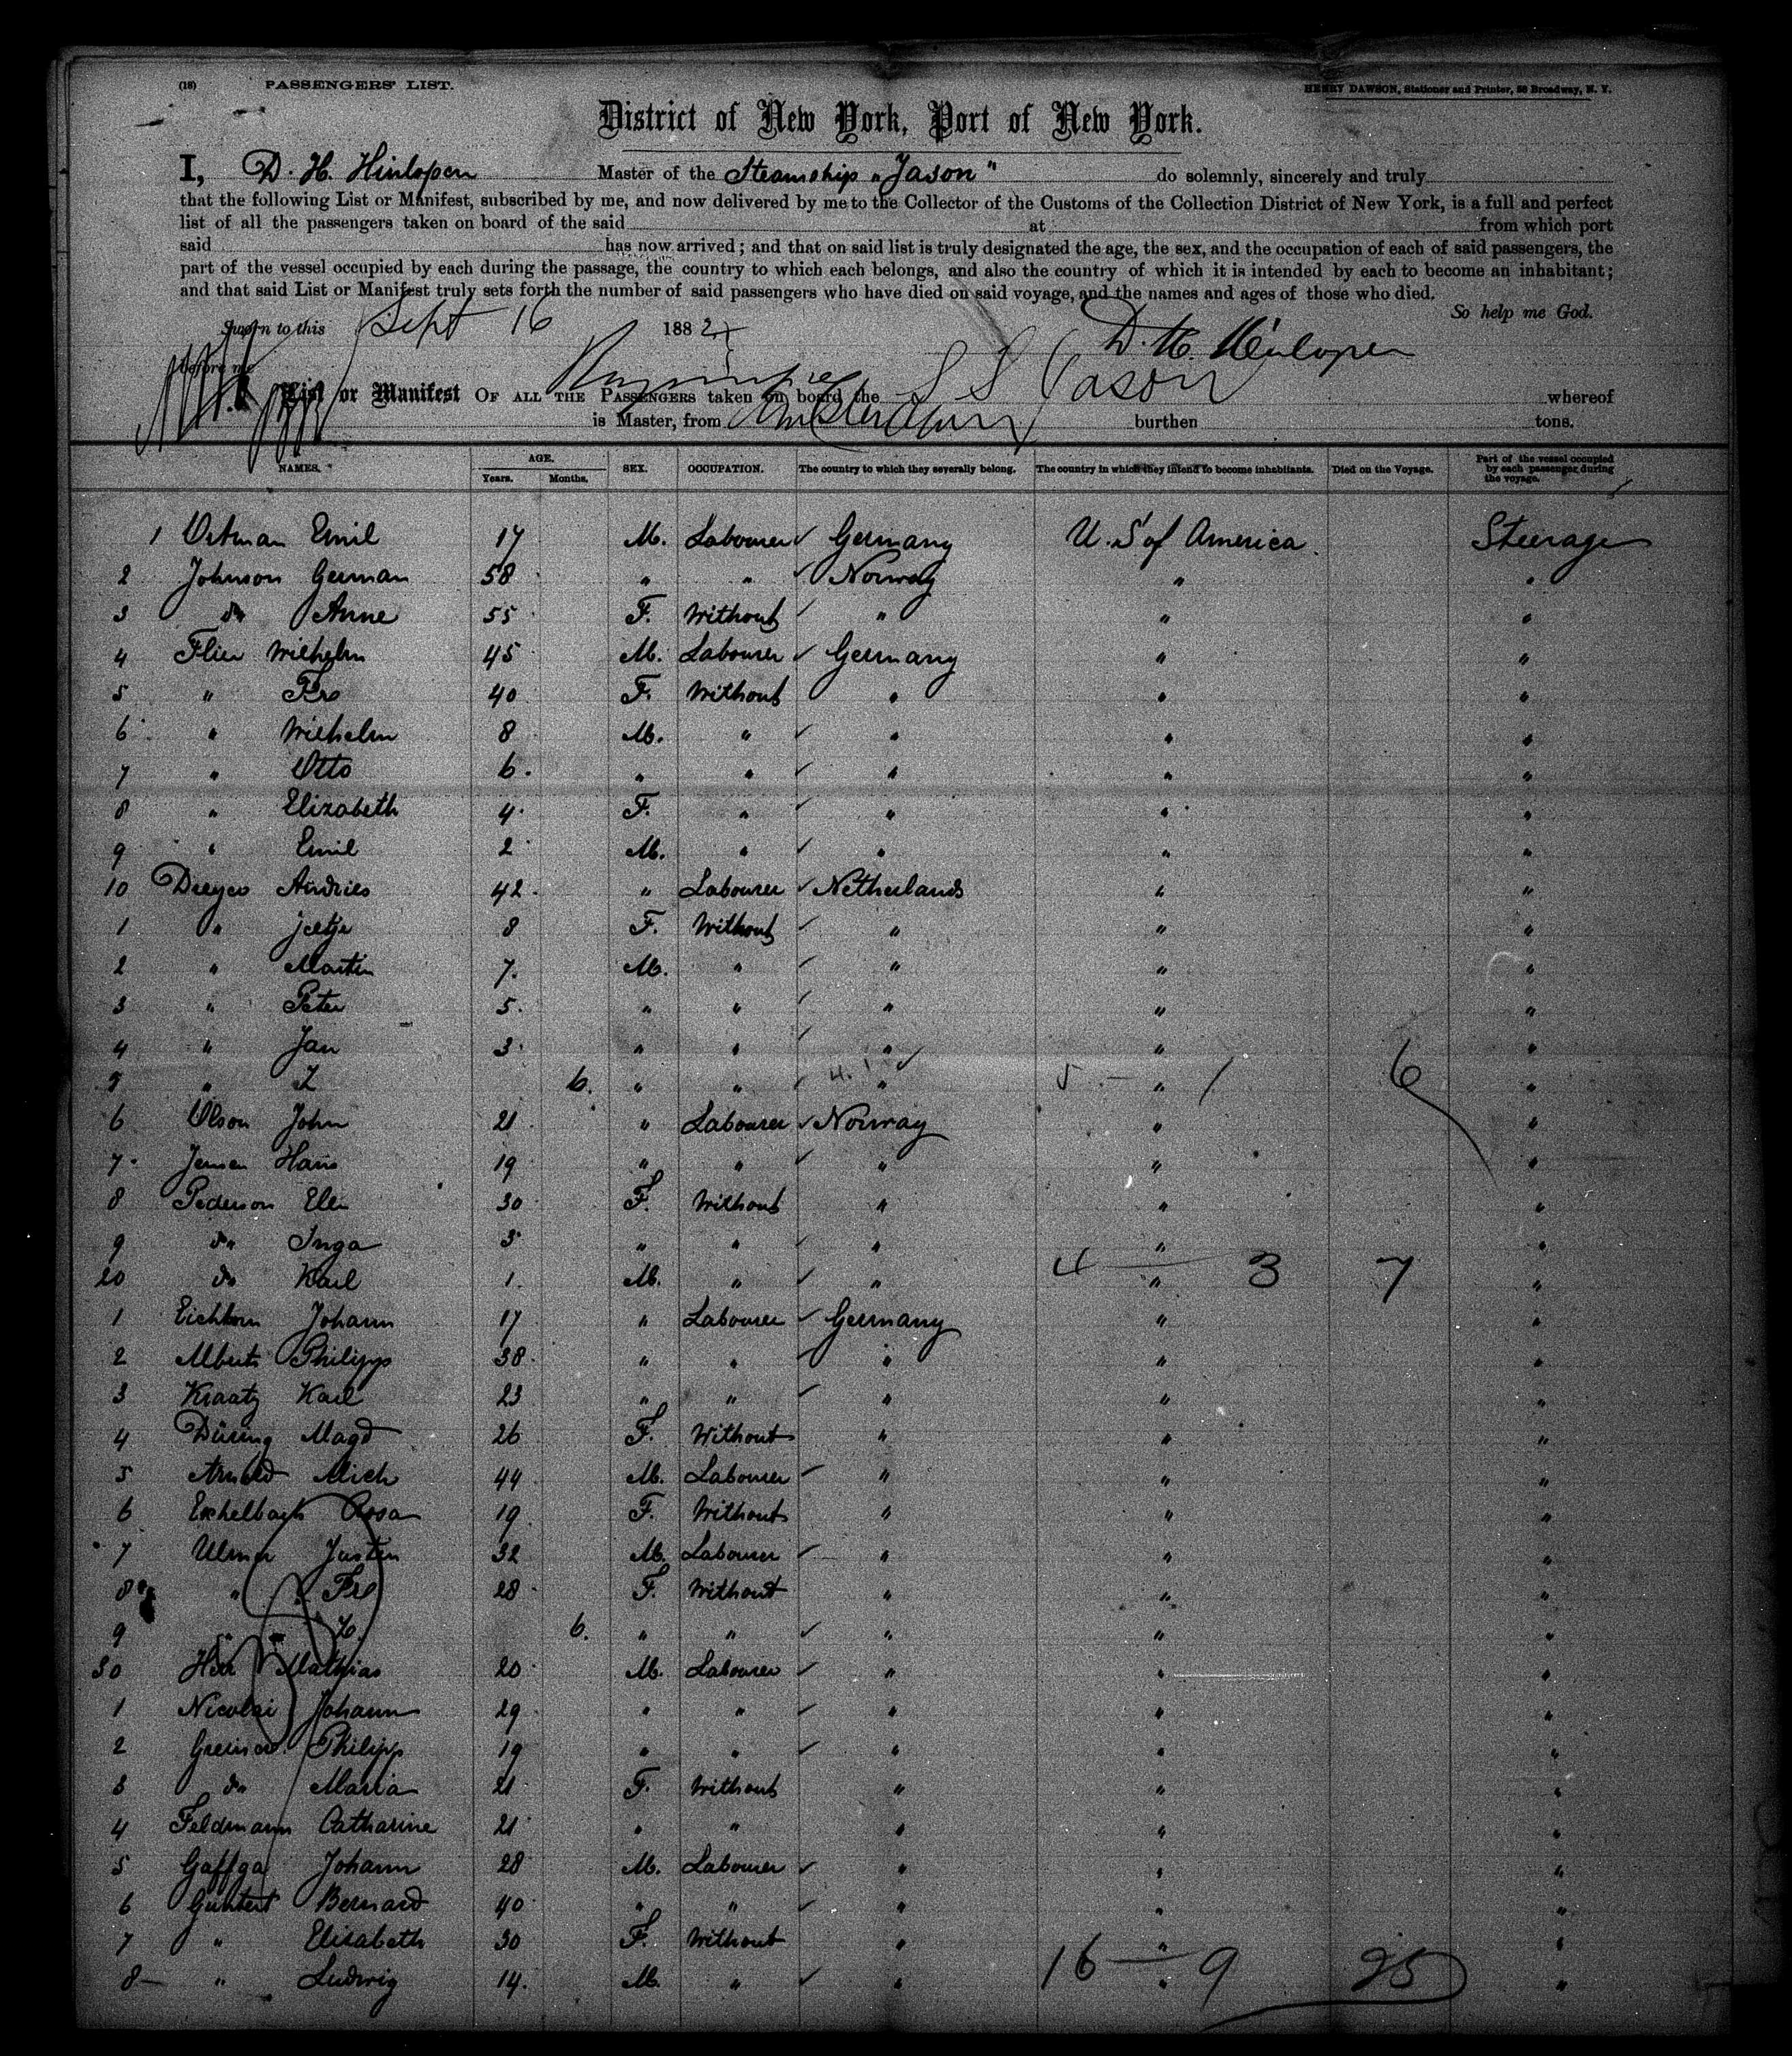 (18) PASSENGERS' LIST. HENRY DAWSON, Stationer and Printer, 58 Broadway, N. Y.
District of New York, Port of New York.
I, D. H. Hinlopen Master of the Steamship „Jason" do solemnly, sincerely and truly
that the following List or Manifest, subscribed by me, and now delivered by me to the Collector of the Customs of the Collection District of New York, is a full and perfect
list of all the passengers taken on board of the said at from which port
said has now arrived; and that on said list is truly designated the age, the sex, and the occupation of each of said passengers, the
part of the vessel occupied by each during the passage, the country to which each belongs, and also the country of which it is intended by each to become an inhabitant;
and that said List or Manifest truly sets forth the number of said passengers who have died on said voyage, and the names and ages of those who died.
So help me God.
Sworn to this Sept 16 1882
D. H. Hinlopen
before me
List or Manifest OF ALL THE PASSENGERS taken on board the S S Jason whereof
is Master, from Amsterdam burthen tons.
NAMES. AGE. Years. Months. SEX. OCCUPATION. The country to which they severally belong. The country in which they intend to become inhabitants. Died on the Voyage. Part of the vessel occupied by each passenger during the voyage.
1 Emil 17 M. Labourer Germany U. S of America Steerage
2 Johnson German 58 " " Norway " "
3 do Anne 55 F. Without " " "
4 Flier Wilhelm 45 M. Labourer Germany " "
5 " Fro 40 F. Without " " "
6 " Wilhelm 8 M. " " " "
7 " Otto 6 " " " " "
8 " Elizabeth 4 F. " " " "
9 " Emil 2 M. " " " "
10 Andries 42 " Labourer Netherlands " "
1 " Jeltje 8 F. Without " " "
2 " Martin 7 M. " " " "
3 " Peter 5 " " " " "
4 " Jan 3 " " " " "
5 " Z 6 " " " " "
5 - 1 6
6 Olson John 21 " Labourer Norway " "
7 Jensen Hans 19 " " " " "
8 Pederson Elen 30 F. Without " " "
9 do Inga 3 " " " " "
20 do Karl 1 M. " " " "
4 - 3 7
1 Eichhorn Johann 17 " Labourer Germany " "
2 Alberts Philipp 38 " " " " "
3 Kraatz Karl 23 " " " " "
4 Düring Magd 26 F. Without " " "
5 Arnold Mich 44 M. Labourer " " "
6 Rosa 19 F. Without " " "
7 Ulmer Justin 32 M. Labourer " " "
8 " Fro 28 F. Without " " "
9 " 6 " " " " "
30 Mathias 20 M. Labourer " " "
1 Nicolai Johann 29 " " " " "
2 Greiner Philipp 19 " " " " "
3 do Maria 21 F. Without " " "
4 Feldmann Catharine 21 " " " " "
5 Gaffga Johann 28 M. Labourer " " "
6 Bernard 40 " " " " "
7 " Elisabeth 30 F. Without " " "
8 " Ludwig 14 M. " " " "
16 - 9 25